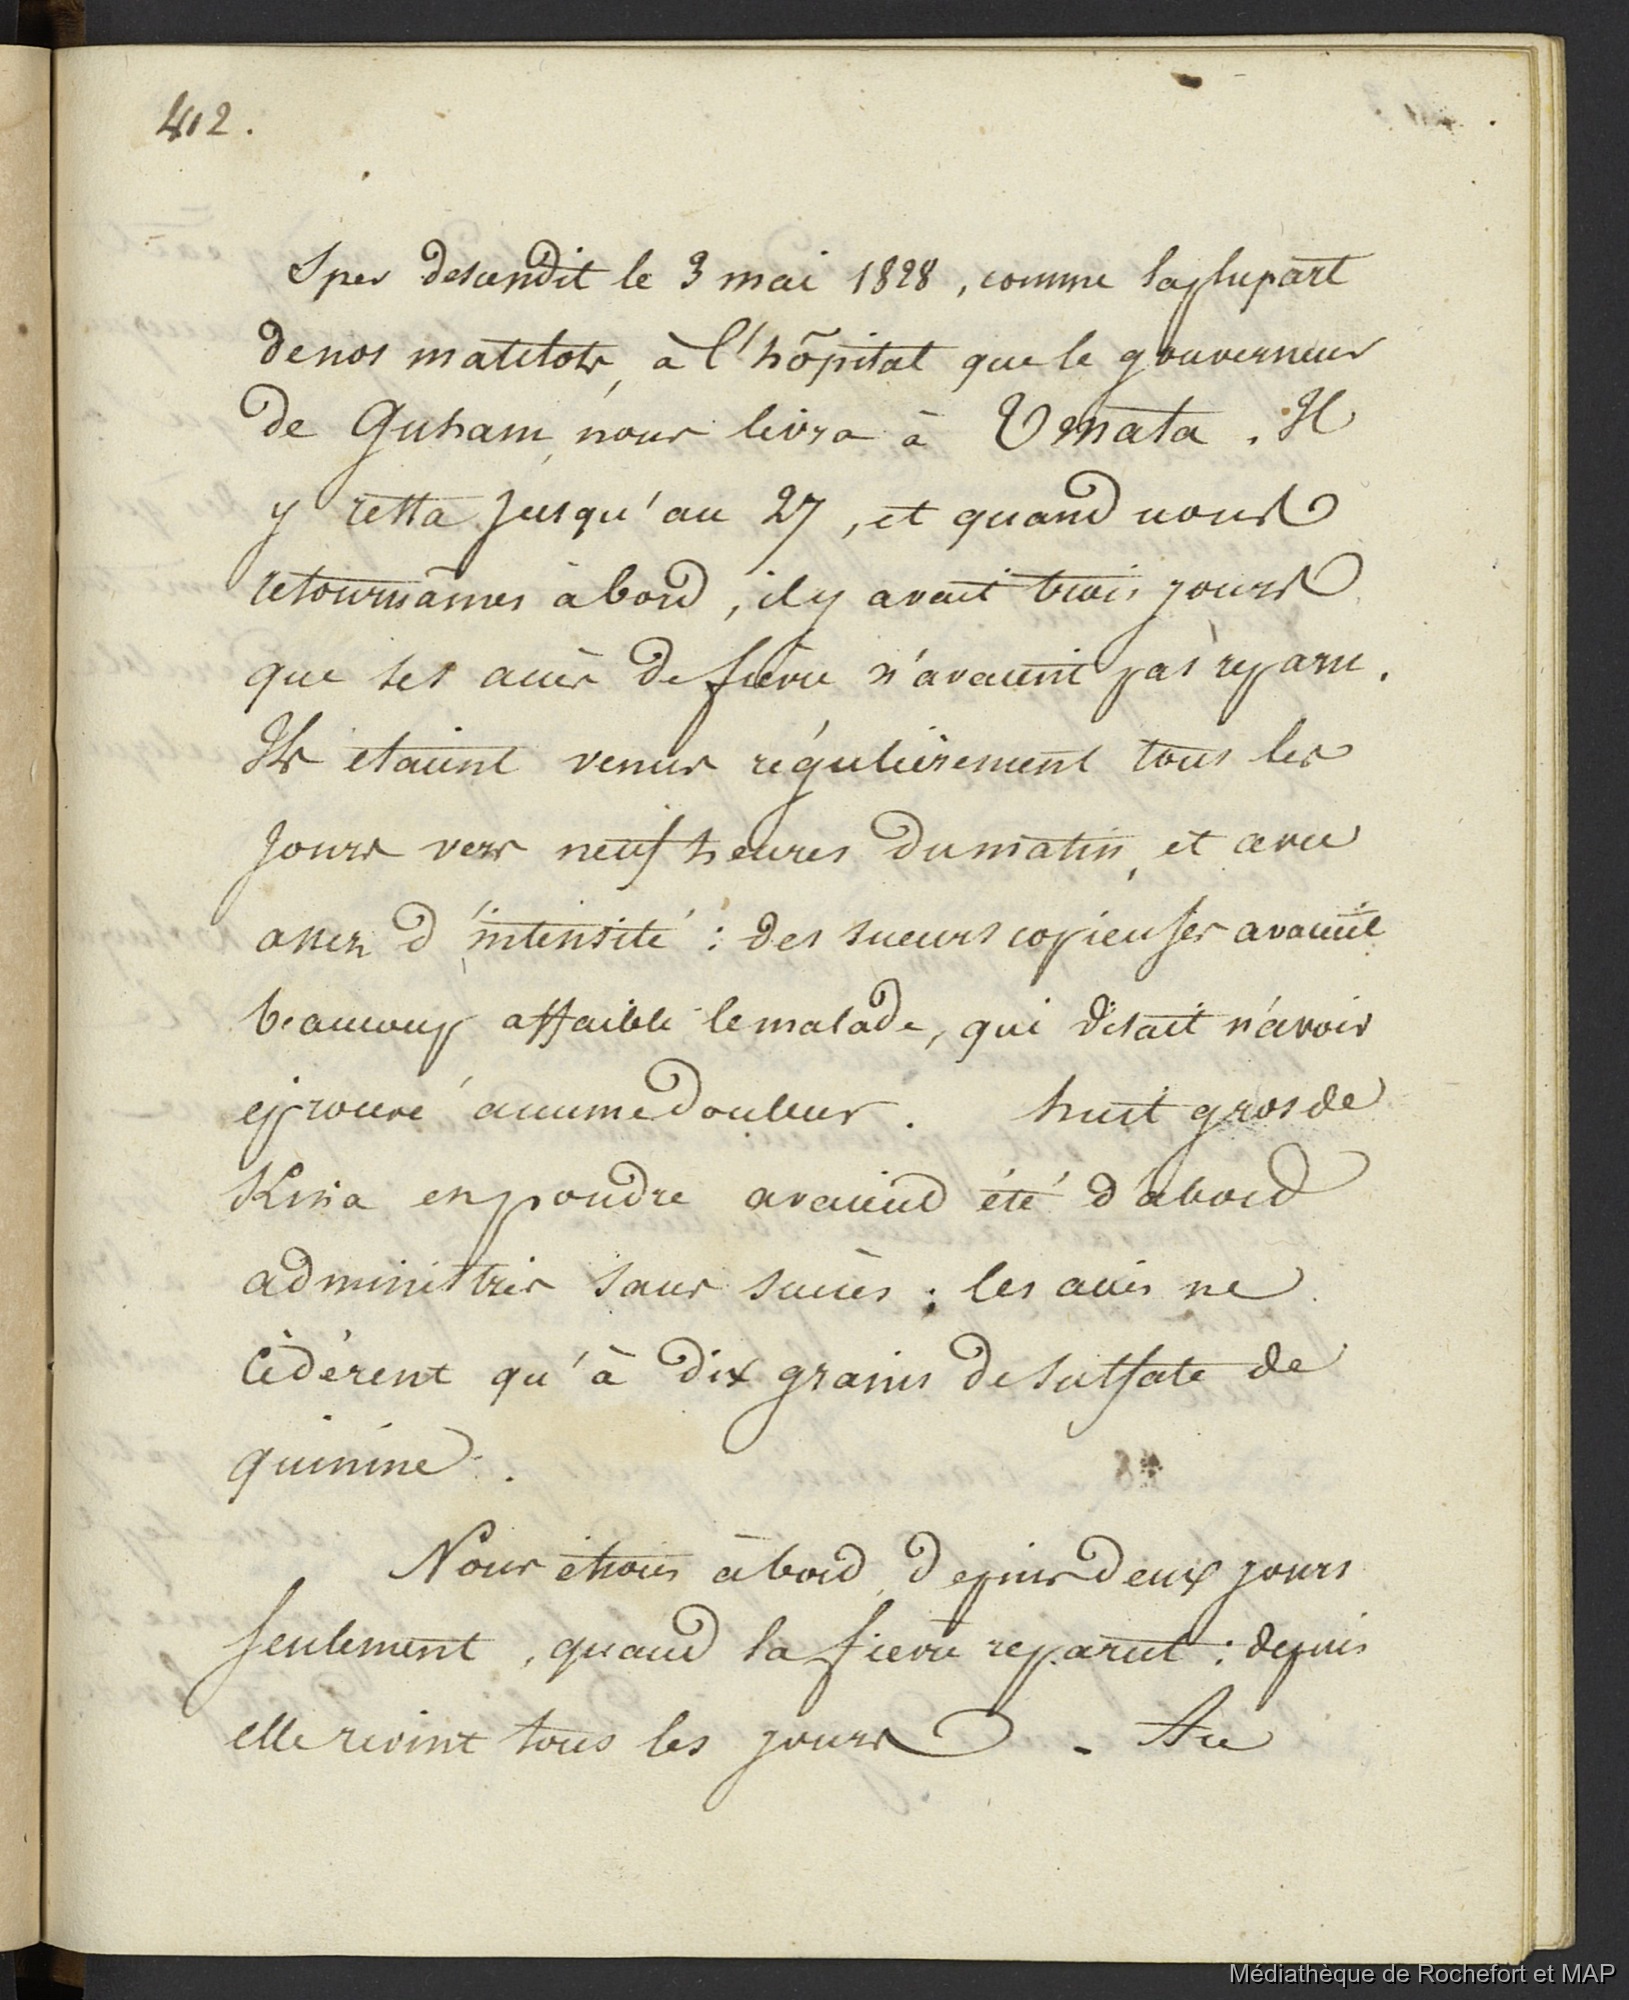 412.
Sper descendit le 3 mai 1828, comme la plupart
de nos matelots, à l'hôpital que le gouverneur
de Guham, nous livra à Umata. Il
y resta jusqu'au 27, et quand nous
retournâmes à bord, il y avait trois jours
que ses accès de fièvre n'avaient pas reparu.
Ils etaient venus régulièrement tous les
jours vers neuf heures du matin, et avec
assez d'intensité : des sueurs copieuses avaient
beaucoup affaibli le malade, qui disait n'avoir
éprouvé aucune douleur. huit gros de
Kina en poudre avaient été d'abord
administrés sans succès ; les accès ne
cédèrent qu'à dix grains de sulfate de
quinine.
Nous étions à bord, depuis deux jours
seulement, quand la fievre reparut : depuis
elle revint tous les jours. Au
Médiathèque de Rochefort et MAP